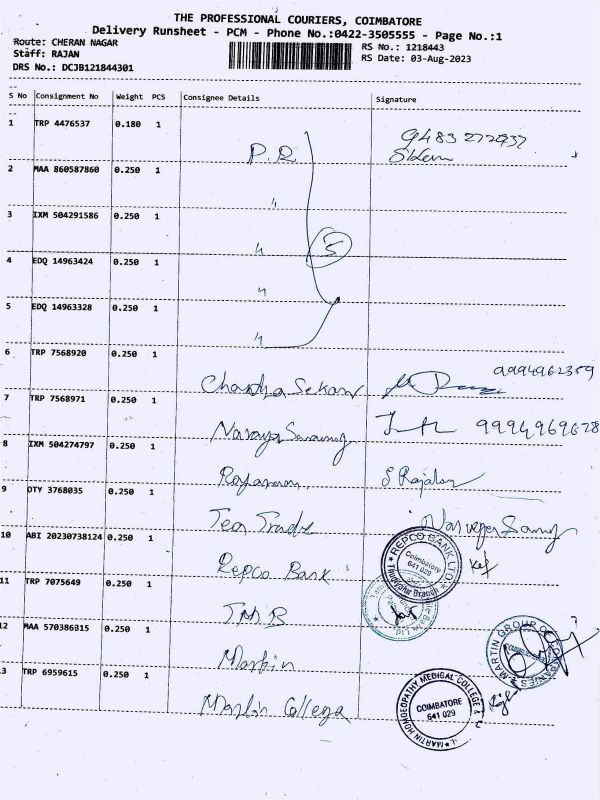 THE PROFESSIONAL COURIERS, COIMBATORE
Delivery Runsheet - PCM - Phone No.:0422-3505555 - Page No.:1
Route: CHERAN NAGAR
Staff: RAJAN
DRS No.: DCJB121844301
RS No.: 1218443
RS Date: 03-Aug-2023
S No Consignment No Weight PCS Consignee Details Signature
1 TRP 4476537 0.180 1
P.R 9483 272937
2 MAA 860587860 0.250 1
"
3 IXM 504291586 0.250 1
" 5
4 EDQ 14963424 0.250 1
"
5 EDQ 14963328 0.250 1
"
6 TRP 7568920 0.250 1
Chandra Sekar 9994962359
7 TRP 7568971 0.250 1
9994969678
8 IXM 504274797 0.250 1
S Rajalan
9 OTY 3768035 0.250 1
Tea Trade
10 ABI 20230738124 0.250 1
Repco Bank REPCO BANK LTD. Coimbatore 641 029 Branch
11 TRP 7075649 0.250 1
TMB
12 MAA 570386315 0.250 1
Martin MARTIN GROUP OF COMPANIES
3 TRP 6959615 0.250 1
Martin College MARTIN HOMOEOPATHY MEDICAL COLLEGE & COIMBATORE 641 029